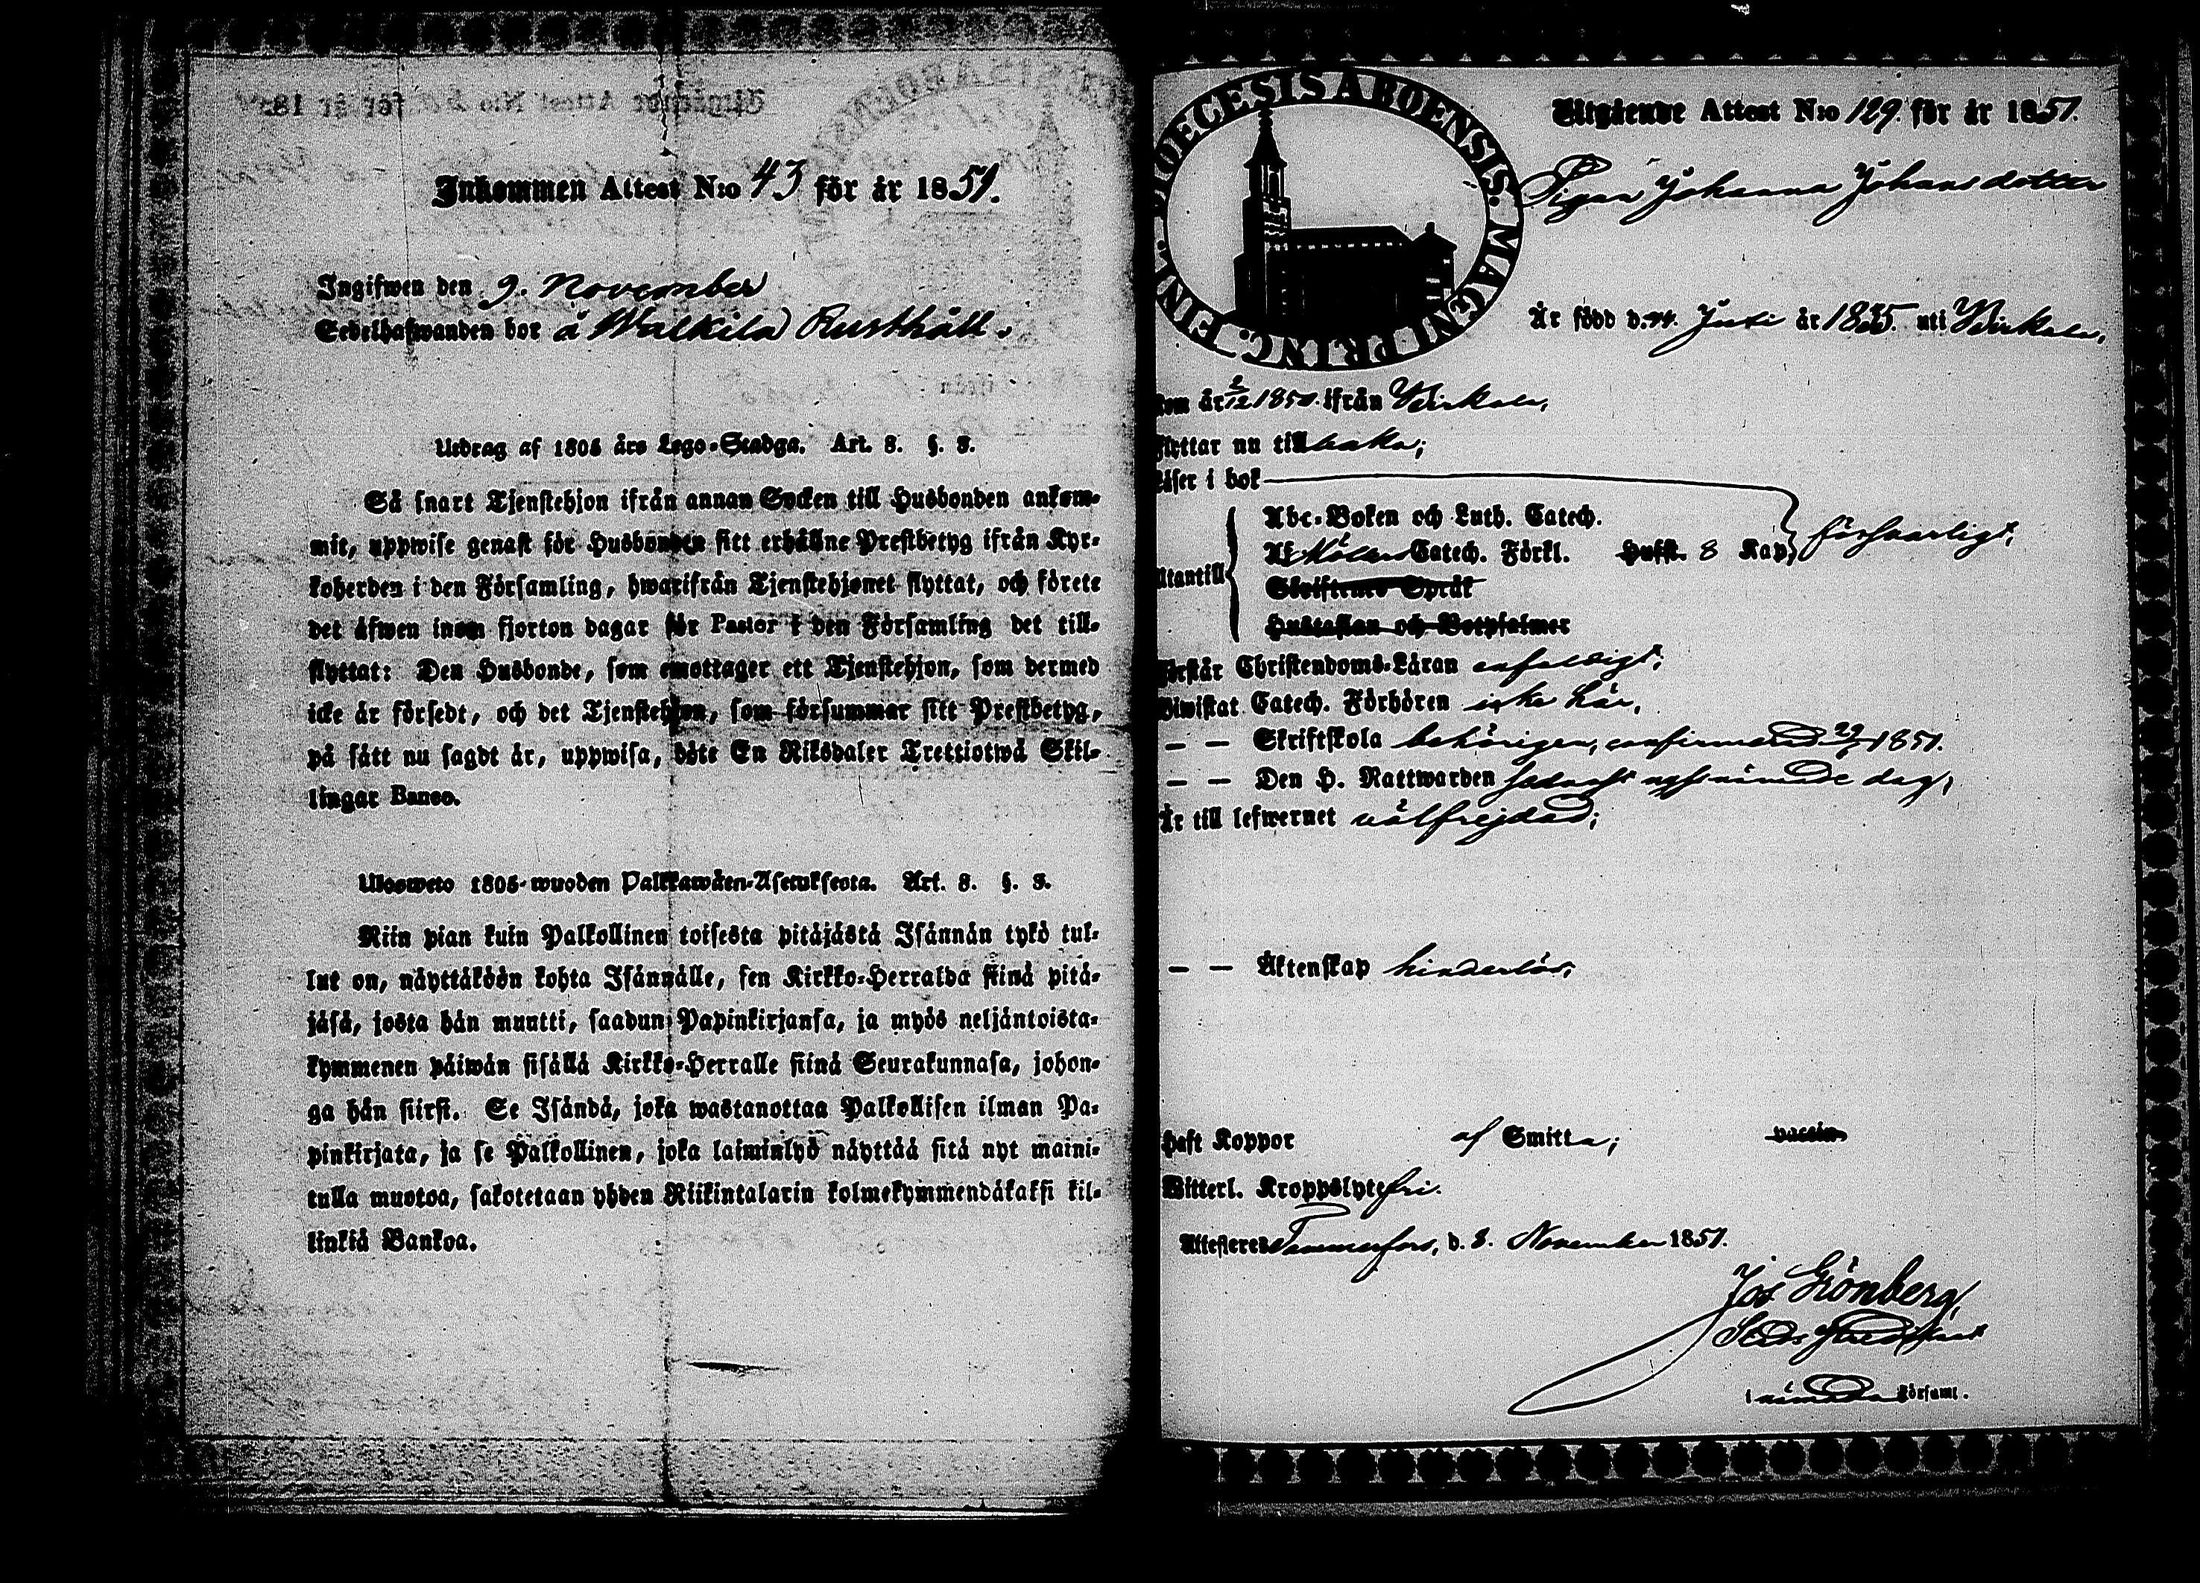 Inkommen Attest N:o 43 för år 1851.
Ingifwen den 9. November
Sedelhafwanden bor å Walkila Rusthåll.
Utdrag af 1805 års Lego-Stadga. Art. 8. §. 3.
Så snart Tjenstehjon ifrån annan Socken till Husbonden ankom-
mit, uppwise genast för Husbonden sitt erhållne Prestbetyg ifrån Kyr-
koherden i den Församling, hwarifrån Tjenstehjonet flyttat, och förete
det äfwen inom fjorton dagar för Pastor i den Församling det till-
flyttat: Den Husbonde, som emottager ett Tjenstehjon, som dermed
icke är försedt, och det Tjenstehjon, som försummar sitt Prestbetyg,
på sätt nu sagdt är, uppwisa, böte En Riksdaler Trettiotwå Skil-
lingar Banco.
Ulosweto 1805-wuoden Palkkawäen-Asetuksesta. Art. 8. §. 3.
Niin pian kuin Palkollinen toisesta pitäjästä Isännän tykö tul-
lut on, näyttäköön kohta Isännälle, sen Kirkko-Herralda siinä pitä-
jäsä, josta hän muutti, saadun Papinkirjansa, ja myös neljäntoista-
kymmenen päiwän sisällä Kirkko-Herralle siinä Seurakunnasa, johon-
ga hän siirsi. Se Isändä, joka wastanottaa Palkollisen ilman Pa-
pinkirjata, ja se Palkollinen, joka laiminlyö näyttää sitä nyt maini-
tulla muotoa, sakotetaan yhden Riikintalarin kolmekymmendäkaksi kil-
linkiä Bankoa.
DIOECESIS ABOENSIS. MAGNI PRINC. FINL.
Utgående Attest N:o 129. för år 1851.
Pigan Johanna Johansdotter
Är född d. 24. Juli år 1835 uti Birkala,
kom år 2/12 1850. ifrån Birkala,
flyttar nu tillbaka;
Läser i bok
Abc-Boken och Luth. Catech.
Utantill Af Möllers Catech. Förkl. Husst. 8 Kap. försvarligt,
Skriftenes Språk
Hustaflan och Botpsalmer
Förstår Christendoms-Läran enfaldigt;
Biwistat Catech. Förhören icke här,
— — Skriftskola behörigen, confirmerad 29/ 1851.
— — Den H. Nattwarden sednast nyssnämnde dag,
Är till lefwernet välfrejdad;
— — Äktenskap hinderlös;
Haft Koppor af Smitta; vaccin.
Witterl. Kroppslyte fri.
Attesteres Tammerfors, d. 8. November 1851.
Jos Grönberg,
Stads
i nämnda Församl.